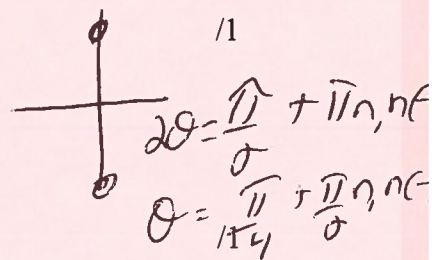 /1
2θ = π/2 + πn, n∈
θ = π/4 + π/2 n, n∈